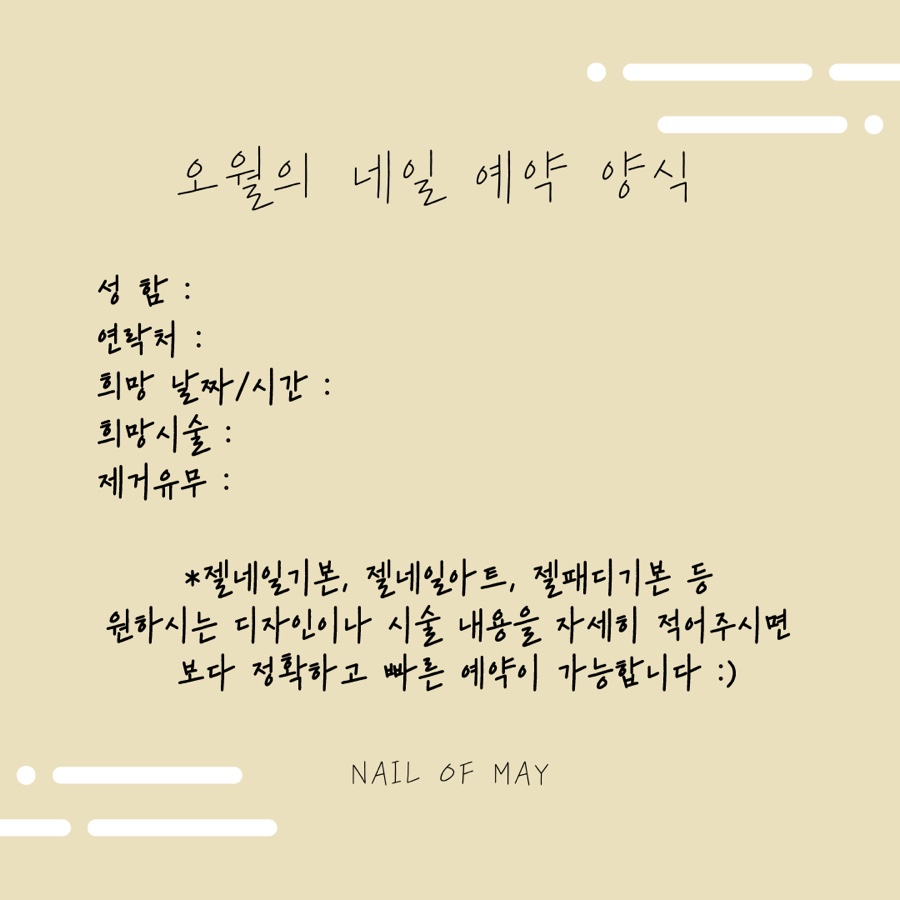 오월의 네일 예약 양식
성 함 :
연락처 :
희망 날짜/시간 :
희망시술 :
제거유무 :
*젤네일기본, 젤네일아트, 젤패디기본 등
원하시는 디자인이나 시술 내용을 자세히 적어주시면
보다 정확하고 빠른 예약이 가능합니다 :)
NAIL OF MAY